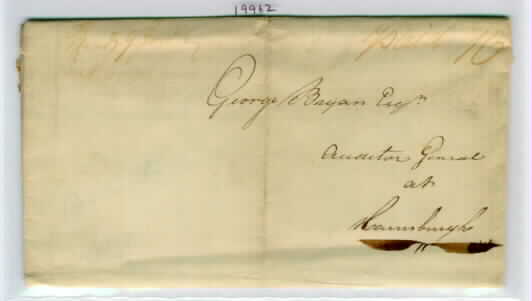 19962
paid 10
George Bryan Esqr
Auditor General
at
Harrisburgh